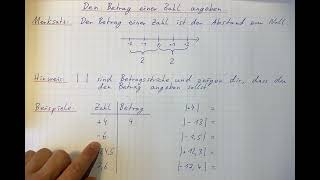 Den Betrag einer Zahl angeben
Merksatz: Der Betrag einer Zahl ist der Abstand zur Null.
-2 -1 0 +1 +2
2 2
Hinweis: | | sind Betragsstriche und zeigen dir, dass du
den Betrag angeben sollst.
Beispiele:
Zahl Betrag |+4| =
+4 4 |-13| =
-6 |-1,5| =
4,5 |+12,3| =
,6 |-17,4| =